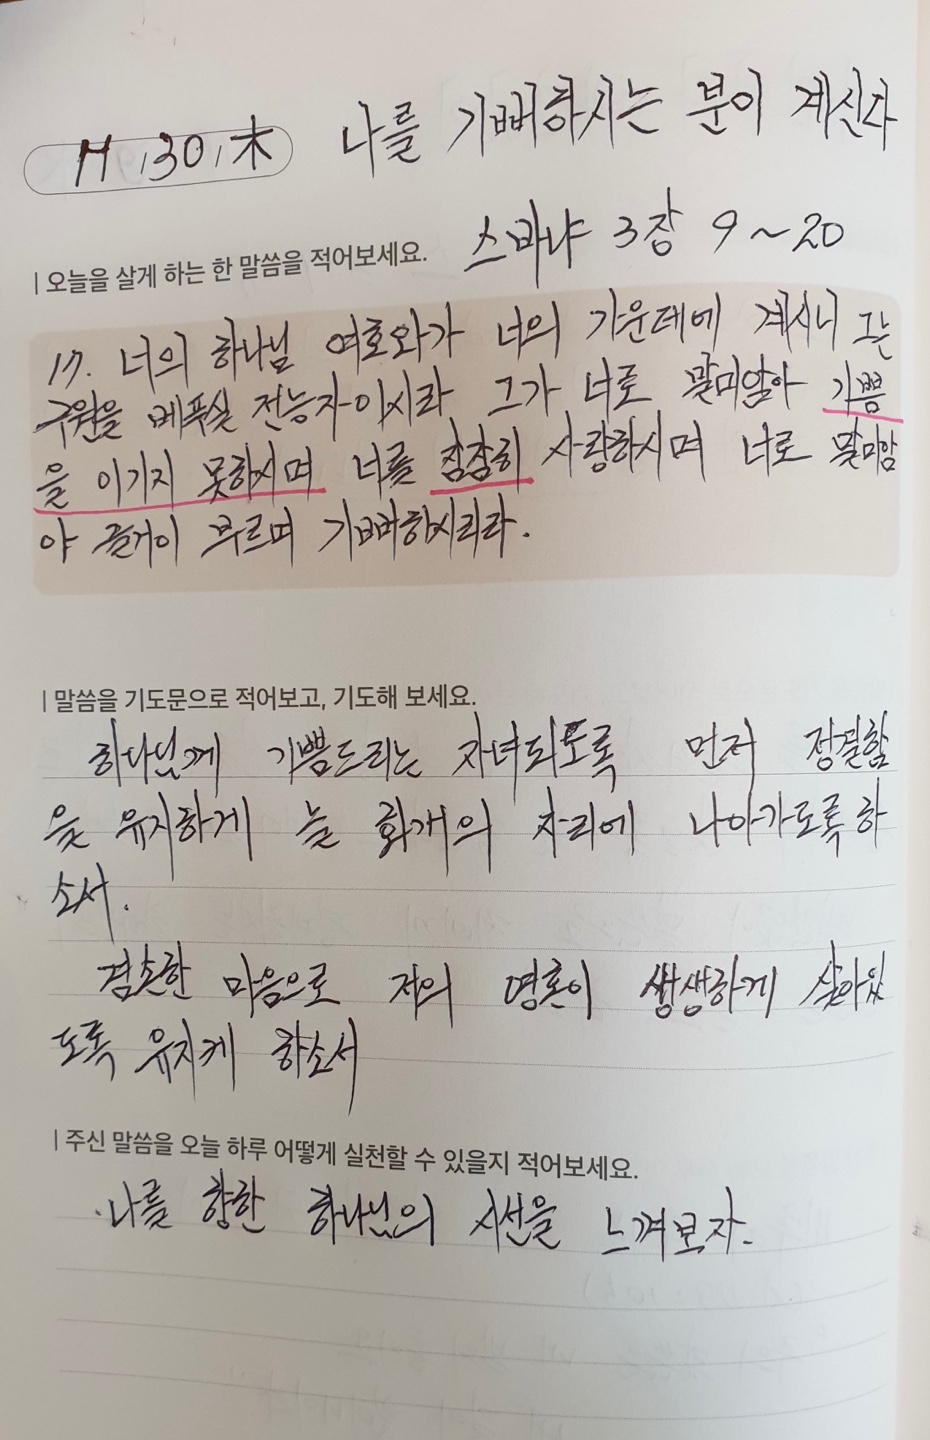 11.30.木 나를 기뻐하시는 분이 계신다
| 오늘을 살게 하는 한 말씀을 적어보세요. 스바냐 3장 9~20
17. 너의 하나님 여호와가 너의 가운데에 계시니 그는
구원을 베푸실 전능자이시라 그가 너로 말미암아 기쁨
을 이기지 못하시며 너를 잠잠히 사랑하시며 너로 말미암
아 즐거이 부르며 기뻐하시리라.
| 말씀을 기도문으로 적어보고, 기도해 보세요.
하나님께 기쁨드리는 자녀되도록 먼저 정결함
을 유지하게 늘 회개의 자리에 나아가도록 하
소서.
겸손한 마음으로 저의 영혼이 생생하게 살아있
도록 유지케 하소서
| 주신 말씀을 오늘 하루 어떻게 실천할 수 있을지 적어보세요.
·나를 향한 하나님의 시선을 느껴보자.